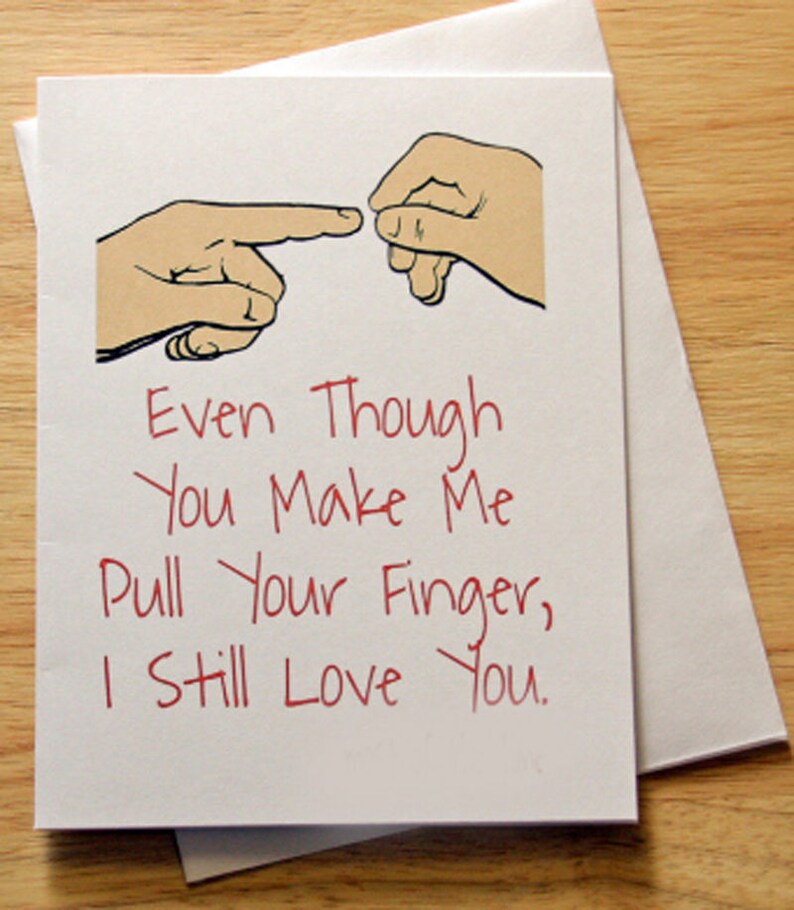 Even Though
You Make Me
Pull Your Finger,
I Still Love You.